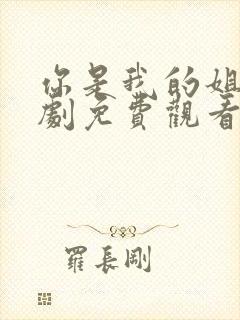 你是我的姐
劇免費觀看
羅長剛